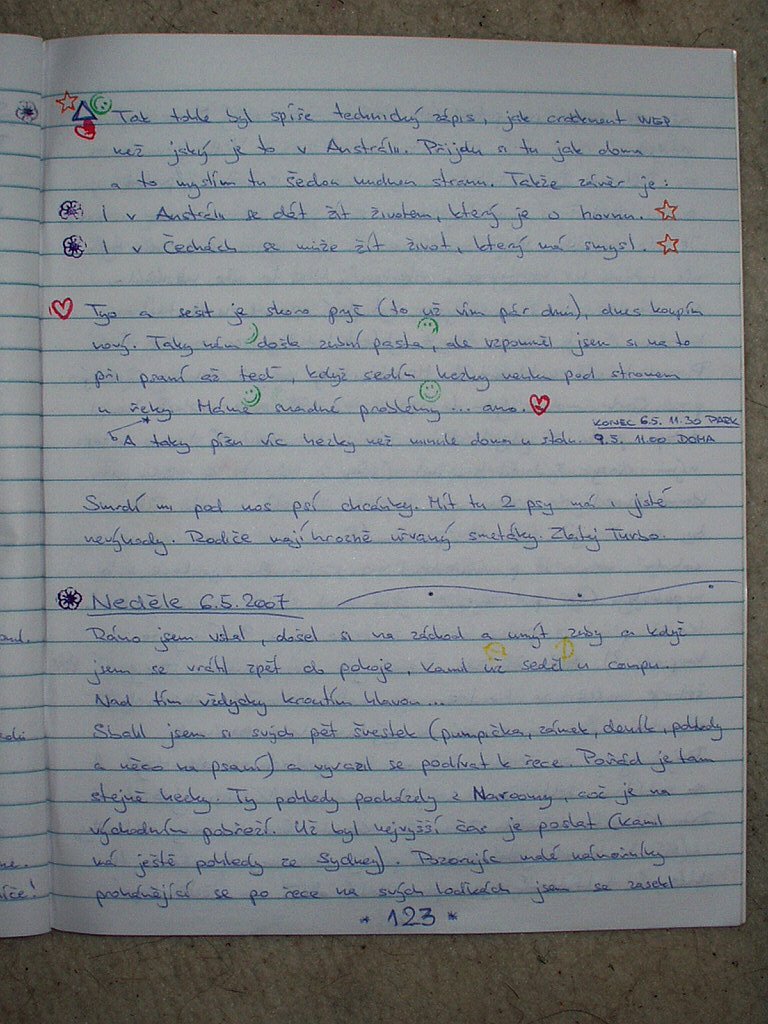 Tak tohle byl spíše technický zápis, jak cracknout WEP
než jaký je to v Austrálii. Přijdu si tu jak doma
a to myslím tu šedou nudnou stranu. Takže závěr je:
I v Austrálii se dát žít životem, který je o hovnu.
I v Čechách se může žít život, který má smysl.
Tyo a sešit je skoro pryč (to už vím pár dnů), dnes koupím
nový. Taky nám došla zubní pasta, ale vzpomněl jsem si na to
při psaní až teď, když sedím hezky venku pod stromem
u řeky. Máme snadné problémy... ano.
KONEC 6.5. 11.30 PARK
A taky píšu víc hezky než minule doma u stolu. 9.5. 11.00 DOMA
Smrdí mi pod nos psí chcánky. Mít tu 2 psy má i jisté
nevýhody. Rodiče mají hrozně uřvaný smetáky. Zlatej Turbo.
Neděle 6.5.2007
Ráno jsem vstal, došel si na záchod a umýt zuby a když
jsem se vrátil zpět do pokoje, Kamil už seděl u compu.
Nad tím vždycky kroutím hlavou...
Sbalil jsem si svých pět švestek (pumpička, zámek, deník, pohledy
a něco na psaní) a vyrazil se podívat k řece. Pořád je tam
stejně hezky. Ty pohledy pocházely z Naroomy, což je na
východním pobřeží. Už byl nejvyšší čas je poslat (Kamil
má ještě pohledy ze Sydney). Pozorujíc malé námořníky
prohánějící se po řece na svých loďkách jsem se zasekl
* 123 *